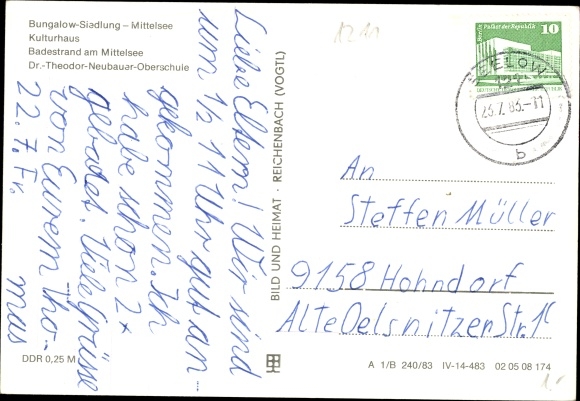 Bungalow-Siedlung – Mittelsee
Kulturhaus
Badestrand am Mittelsee
Dr.-Theodor-Neubauer-Oberschule
Liebe Eltern! Wir sind
um ½ 11 Uhr gut an-
gekommen. Ich
habe schon 2x
gebadet. Viele Grüsse
von Eurem Tho-
mas
22. 7. Fr.
DDR 0,25 M
BILD UND HEIMAT · REICHENBACH (VOGTL)
1211
Berlin, Palast der Republik
10
SEELOW
121
23.7.83.-11
b
An
Steffen Müller
9158 Hohndorf
Alte Oelsnitzer Str. 1
A 1/B 240/83 IV-14-483 02 05 08 174